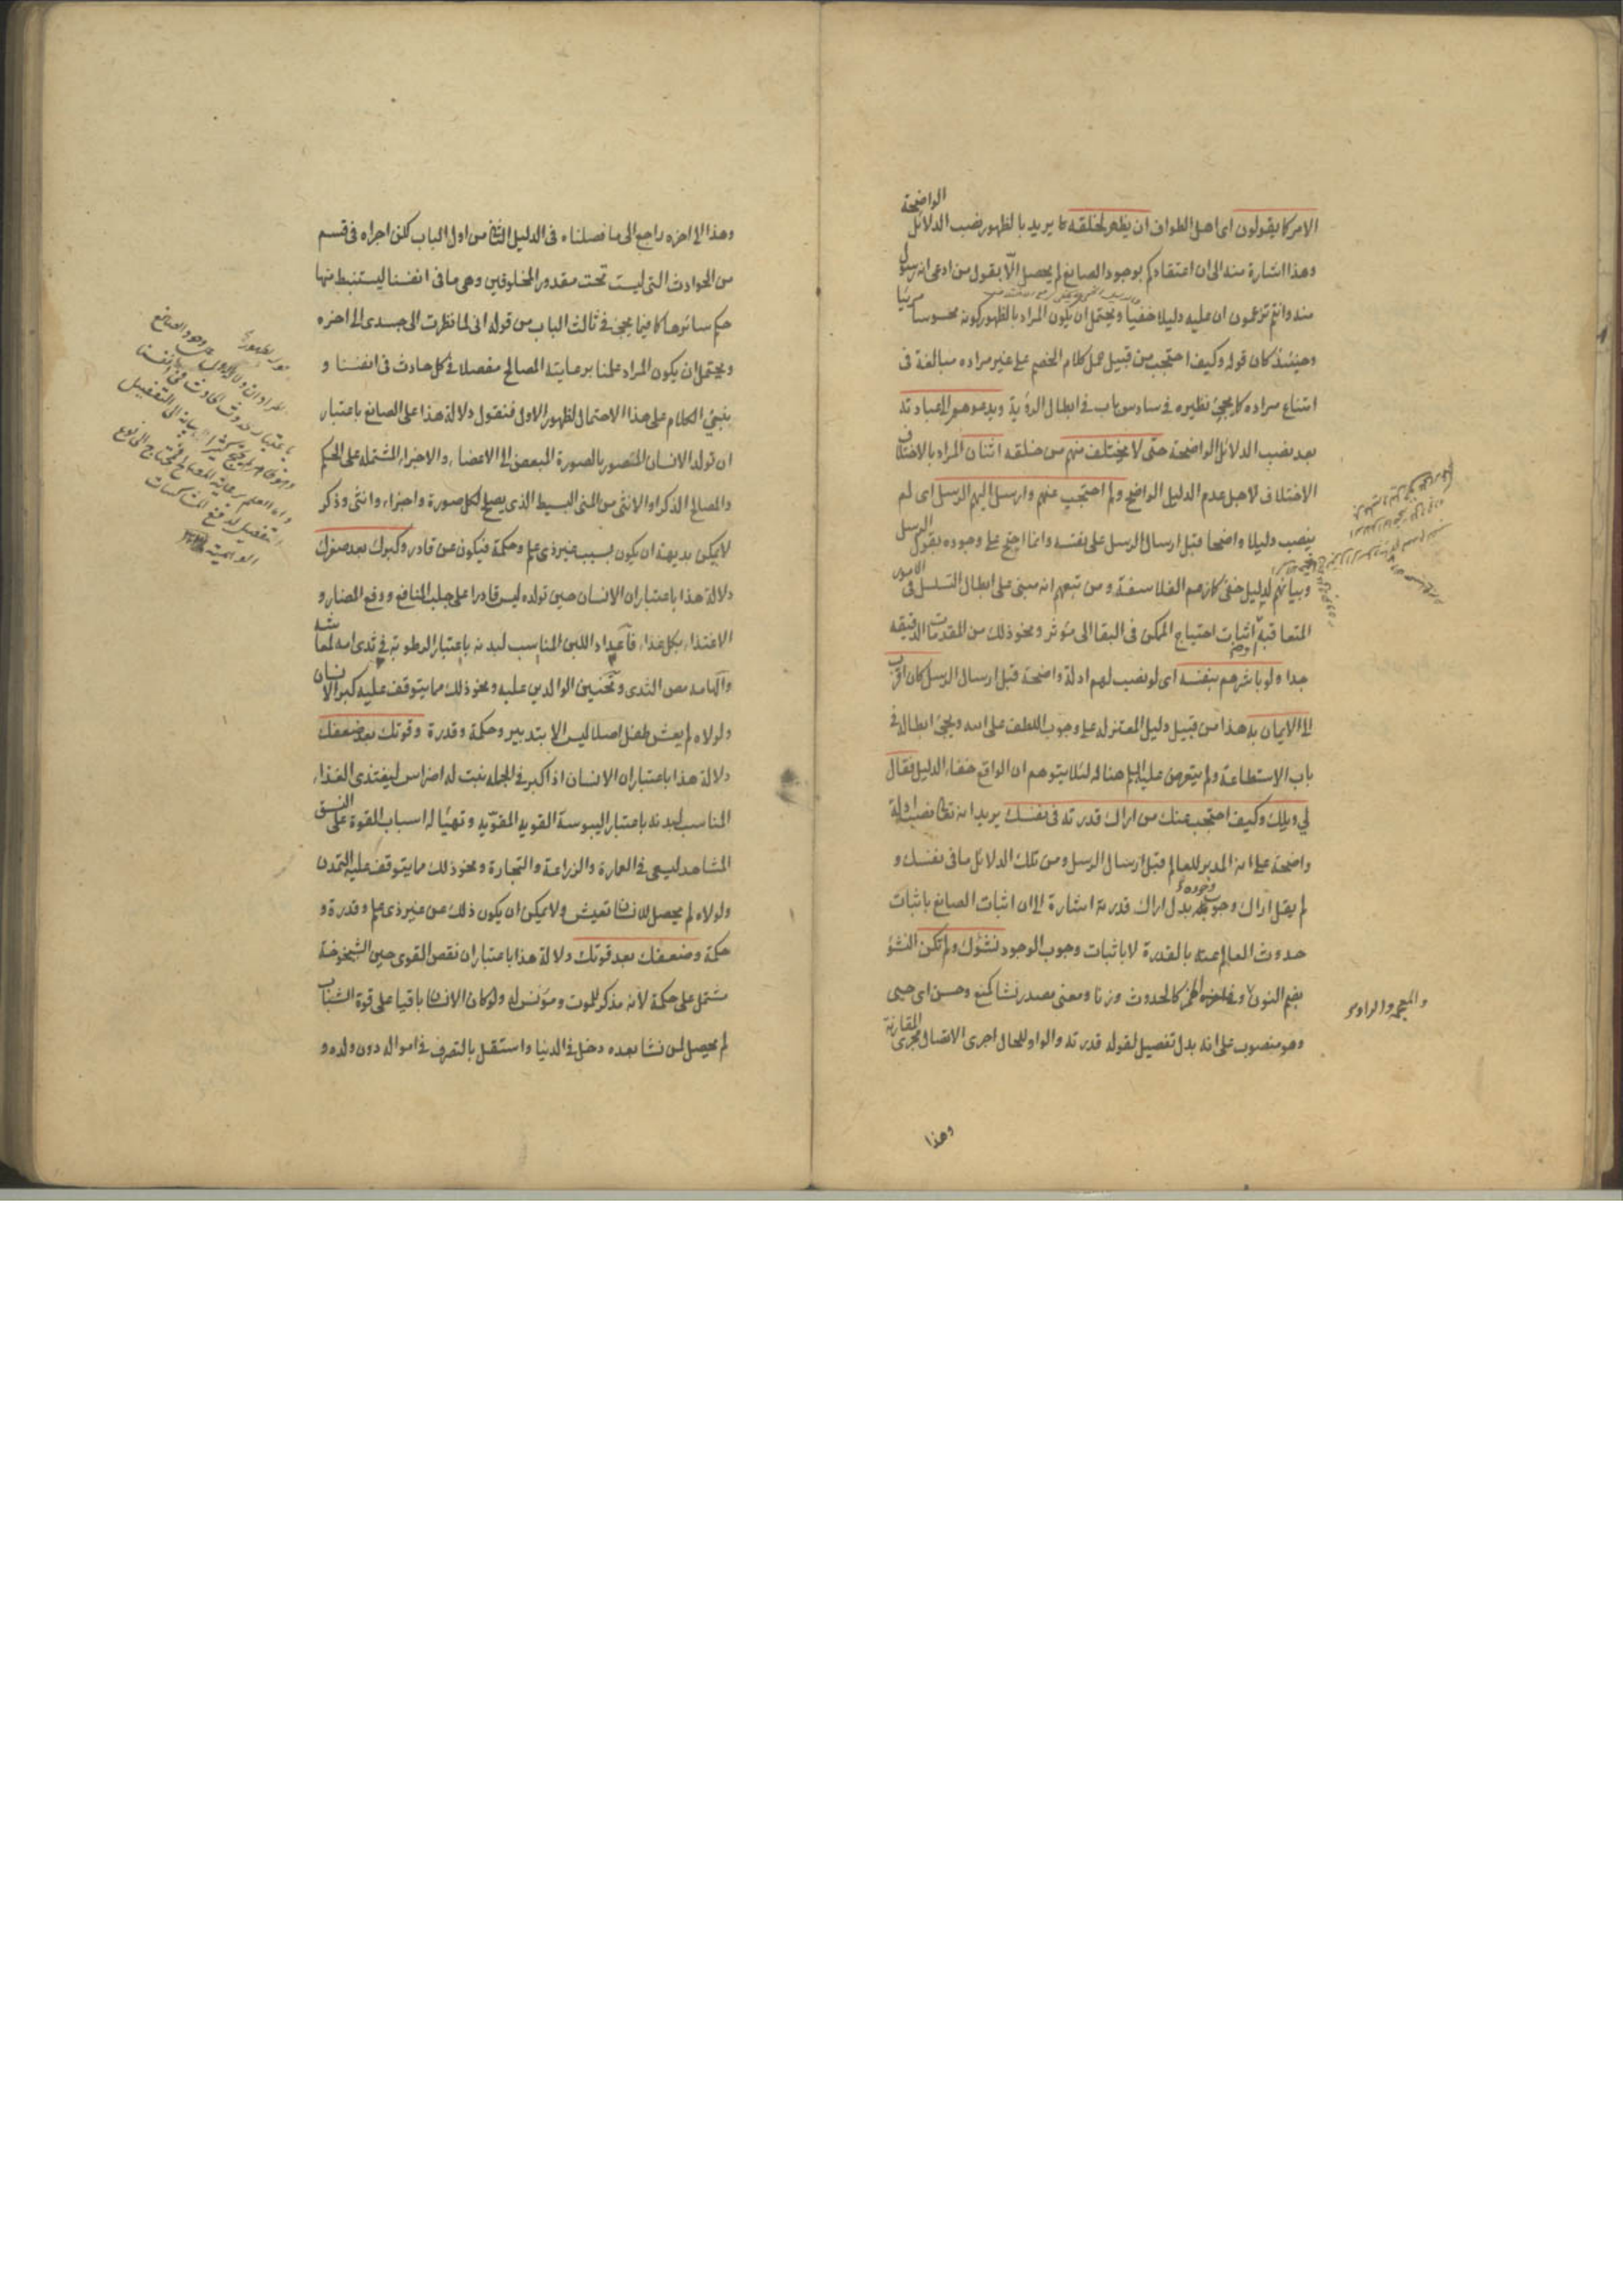 الامر كما يقولون اى اهل الطواف ان يظهر لخلقه ما يريد بالظهور نصب الدلائل الواضحة
وهذا اشارة منه الى ان اعتقادكم بوجود الصانع لم يحصل الّا بقول من ادعى انه رسول
منه وانتم تزعمون ان عليه دليلا خفيا ويحتمل ان يكون المراد بالظهور كونه محسوسا مرئيا
وحينئذ كان قوله وكيف احتجب من قبيل حمل كلام الخصم على غير مراده مبالغة فى
امتناع مراده كما يجئ نظيره فى سادس باب فى ابطال الرؤية ويدعوهم الى عبادته
بعد نصب الدلائل الواضحة حتى لا يختلف منهم من خلقه اثنان المراد بالاختلاف
الاختلاف لاجل عدم الدليل الواضح ولم احتجب عنهم وارسل اليهم الرسل اى لم
ينصب دليلا واضحا قبل ارسال الرسل على نفسه وانما احتج على وجوده بقول الرسل
وبيانهم لدليل خفى كما زعم الفلاسفة ومن تبعهم انه مبنى على ابطال التسلسل فى الامور
المتعاقبة اثبات احتياج الممكن فى البقا الى مؤثر ونحو ذلك من المقدمات الدقيقه
جدا ولو باشرهم بنفسه اى لو نصب لهم ادلة واضحة قبل ارسال الرسل كان اقرب
الى الايمان به هذا من قبيل دليل المعتزله على وجوب اللطف على الله ويجئ ابطاله فى
باب الاستطاعة ولم يتعرض عليه السلم هنا له لئلا يتوهم ان الواقع خفاء الدليل فقال
لى ويلك وكيف احتجب عنك من اراك قدرته فى نفسك يريد انه تعالى نصب ادلة
واضحة على انه المدبر للعالم قبل ارسال الرسل ومن تلك الدلائل ما فى نفسك و
لم يقل اراك وجوب وجوده بدل اراك قدرته اشارة الى ان اثبات الصانع باثبات
حدوث العالم عنه بالقدرة لا باثبات وجوب الوجود نشؤك ولم تكن النشؤ
بضم النون كالحدوث وزنا ومعنى مصدر نشا كمنع وحسن اى حيى
وهو منصوب على انه بدل تفصيل لقوله قدرته والواو للحال اجرى الاتصال مجرى المقارنة
وهذا
وهذا الى اخره راجع الى ما فصلناه فى الدليل الثانى من اول الباب لكن اجراه فى قسم
من الحوادث التى ليست تحت مقدور المخلوقين وهى ما فى انفسنا ليستنبط منها
حكم سائرها كما فيما يجئ فى ثالث الباب من قوله انى لما نظرت الى جسدى الى اخره
ويحتمل ان يكون المراد علمنا برعايته المصالح مفصلا فى كل حادث فى انفسنا و
ينبنى الكلام على هذا الاحتمال لظهور الاول فنقول دلالة هذا على الصانع باعتبار
ان تولد الانسان المتصور بالصورة المبعض الى الاعضاء والاجزاء المشتمله على الحكم
والمصالح الذكر او الانثى من المنى البسيط الذى يصلح لكل صورة واجزاء وانثى وذكر
لا يمكن بديهة ان يكون بسبب غير ذى علم وحكمة فيكون عن قادر وكبرك بعد صغرك
دلالة هذا باعتبار ان الانسان حين تولده ليس قادرا على جلب المنافع ودفع المضار و
الاغتذاء بكل غذاء فاعداد اللبن المناسب لبدنه باعتبار الرطوبة فى ثدى امه لمعاشه
والهامه مص الثدى وتحنين الوالدين عليه ونحو ذلك مما يتوقف عليه كبر الانسان
ولولاه لم يعش طفل اصلا ليس الا بتدبير وحكمة وقدرة وقوتك بعد ضعفك
دلالة هذا باعتبار ان الانسان اذا كبر فى الجمله نبت له اضراس ليغتذى الغذاء
المناسب لبدنه باعتبار اليبوسة القويه المقوّيه وتهيّا له اسباب القوة على النسق
المشاهد ليسعى فى العمارة والزراعة والتجارة ونحو ذلك مما يتوقف عليه التمدن
ولولاه لم يحصل للانسان تعيش ولا يمكن ان يكون ذلك عن غير ذى علم وقدرة و
حكمة وضعفك بعد قوتك دلالة هذا باعتبار ان نقص القوى حين الشيخوخة
مشتمل على حكمة لانه مذكر للموت ومؤنس له ولو كان الانسان باقيا على قوة الشباب
لم يحصل لمن نشا بعده دخل فى الدنيا واستقل بالتصرف فى امواله دون ولده و